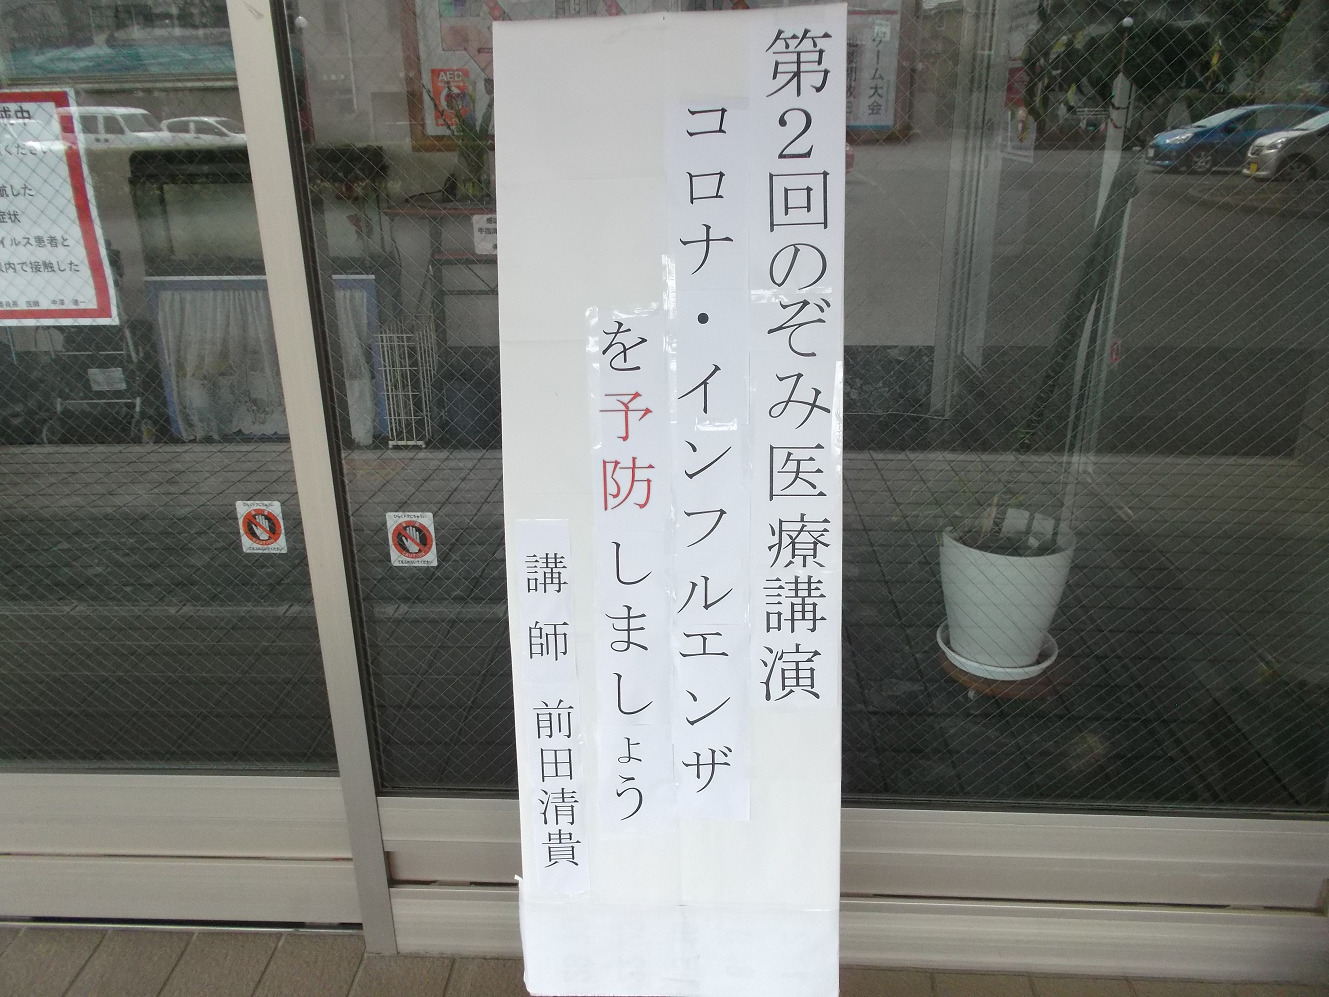 第2回のぞみ医療講演
コロナ・インフルエンザ
を予防しましょう
講師 前田清貴
AED
ゲーム大会
症状
イルス患者と
以内で接触した